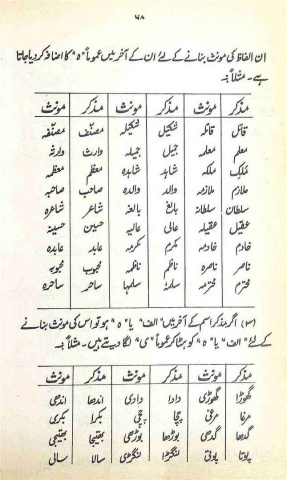 ۶۸
ان الفاظ کی مونث بنانے کے لئے ان کے آخر میں عموماً "ہ" کا اضافہ کر دیا جاتا
ہے۔ مثلاً:۔
مذکر مونث مذکر مونث مذکر مونث
قاتل قاتلہ شکیل شکیلہ مصنف مصنفہ
معلم معلمہ جمیل جمیلہ وارث وارثہ
ملک ملکہ شاہد شاہدہ معظم معظمہ
ملازم ملازمہ والد والدہ صاحب صاحبہ
سلطان سلطانہ بالغ بالغہ شاعر شاعرہ
عقیل عقیلہ عالی عالیہ حسین حسینہ
خادم خادمہ مکرم مکرمہ عابد عابدہ
ناصر ناصرہ ناظم ناظمہ محبوب محبوبہ
محترم محترمہ سلمہٗ سلمہا ساحر ساحرہ
(۳) اگر مذکر اسم کے آخر میں "الف" یا "ہ" ہو تو اس کی مونث بنانے
کے لئے "الف" یا "ہ" کو ہٹا کر عموماً "ی" لگا دیتے ہیں۔ مثلاً:۔
مذکر مونث مذکر مونث مذکر مونث
گھوڑا گھوڑی دادا دادی اندھا اندھی
مرغا مرغی چچا چچی بکرا بکری
گدھا گدھی بوڑھا بوڑھی بھتیجا بھتیجی
پوتا پوتی لنگڑا لنگڑی سالا سالی